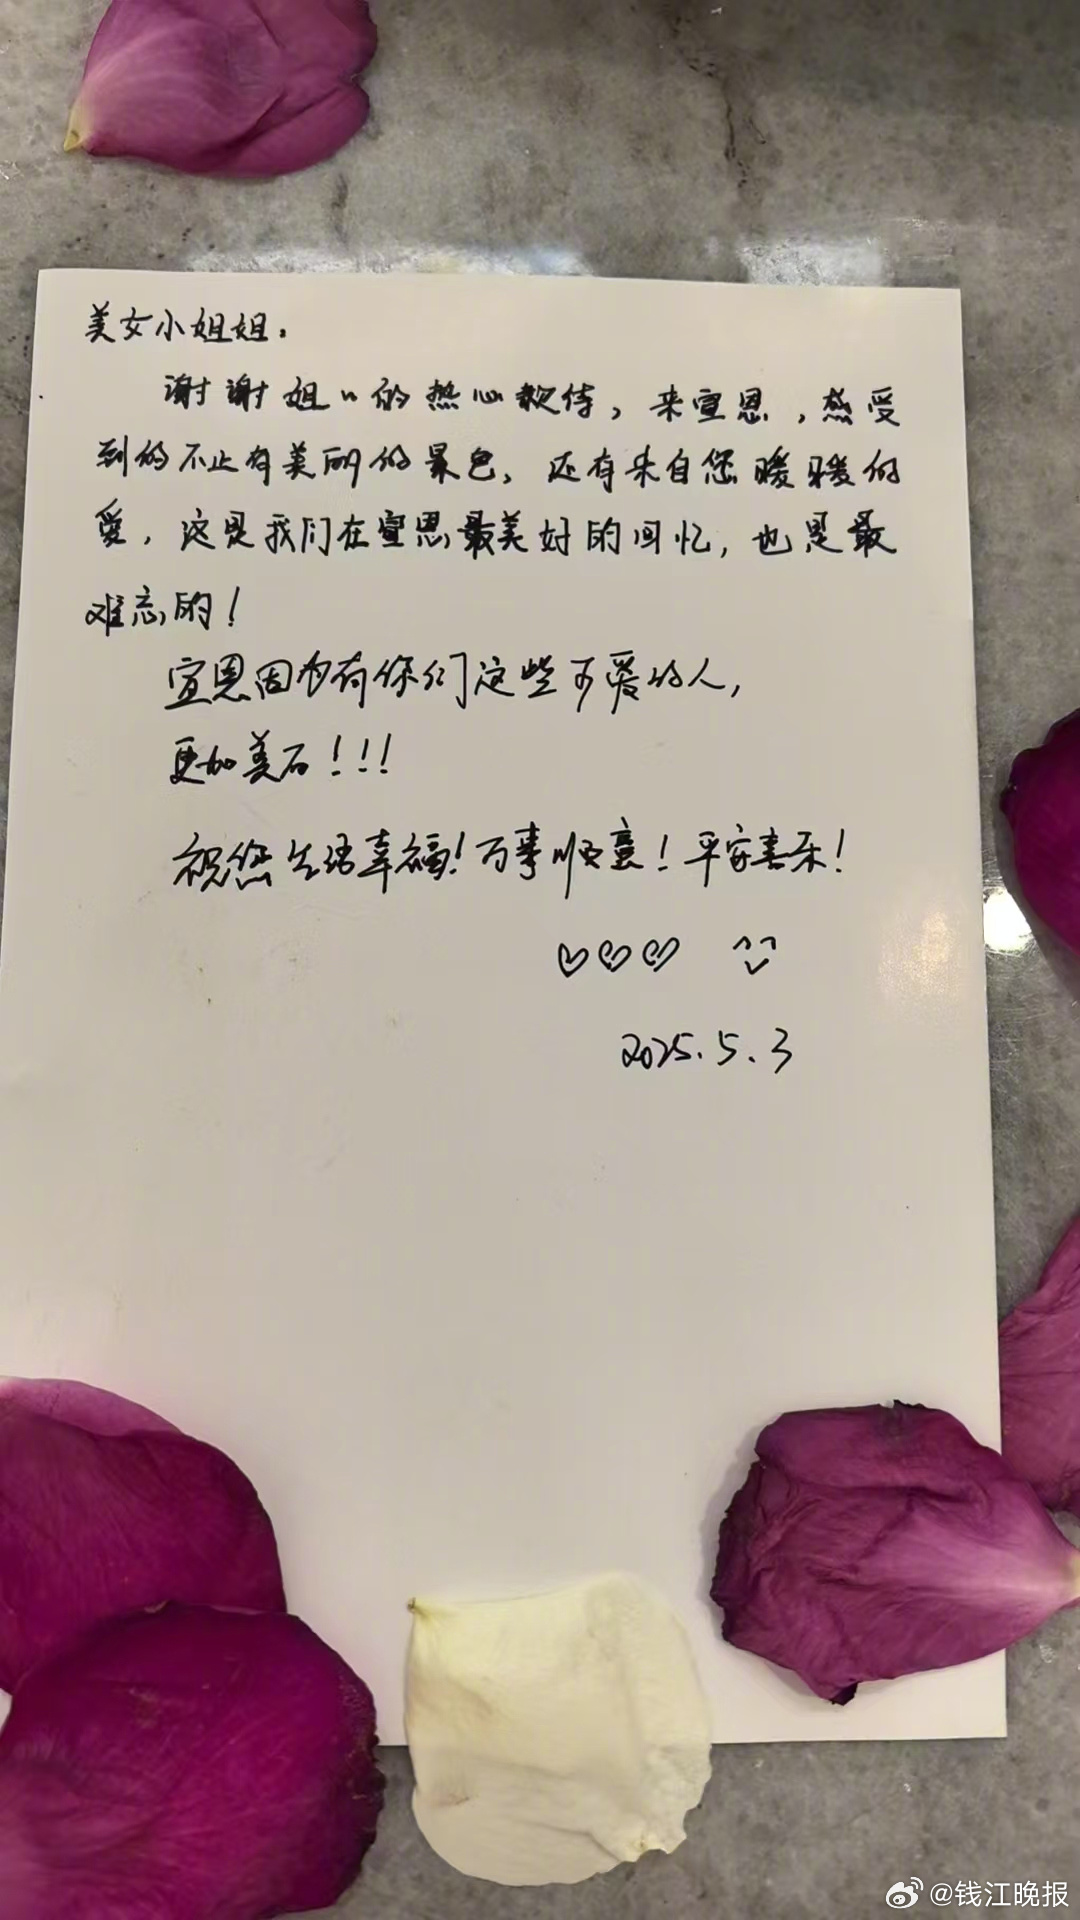 美女小姐姐：
谢谢姐〃的热心款待，来宣恩，感受
到的不止有美丽的景色，还有来自您暖暖的
爱，这是我们在宣恩最美好的回忆，也是最
难忘的！
宣恩因为有你们这些可爱的人，
更加美石！！！
祝您生活幸福！万事顺意！平安喜乐！
♡♡♡
2025.5.3
@钱江晚报